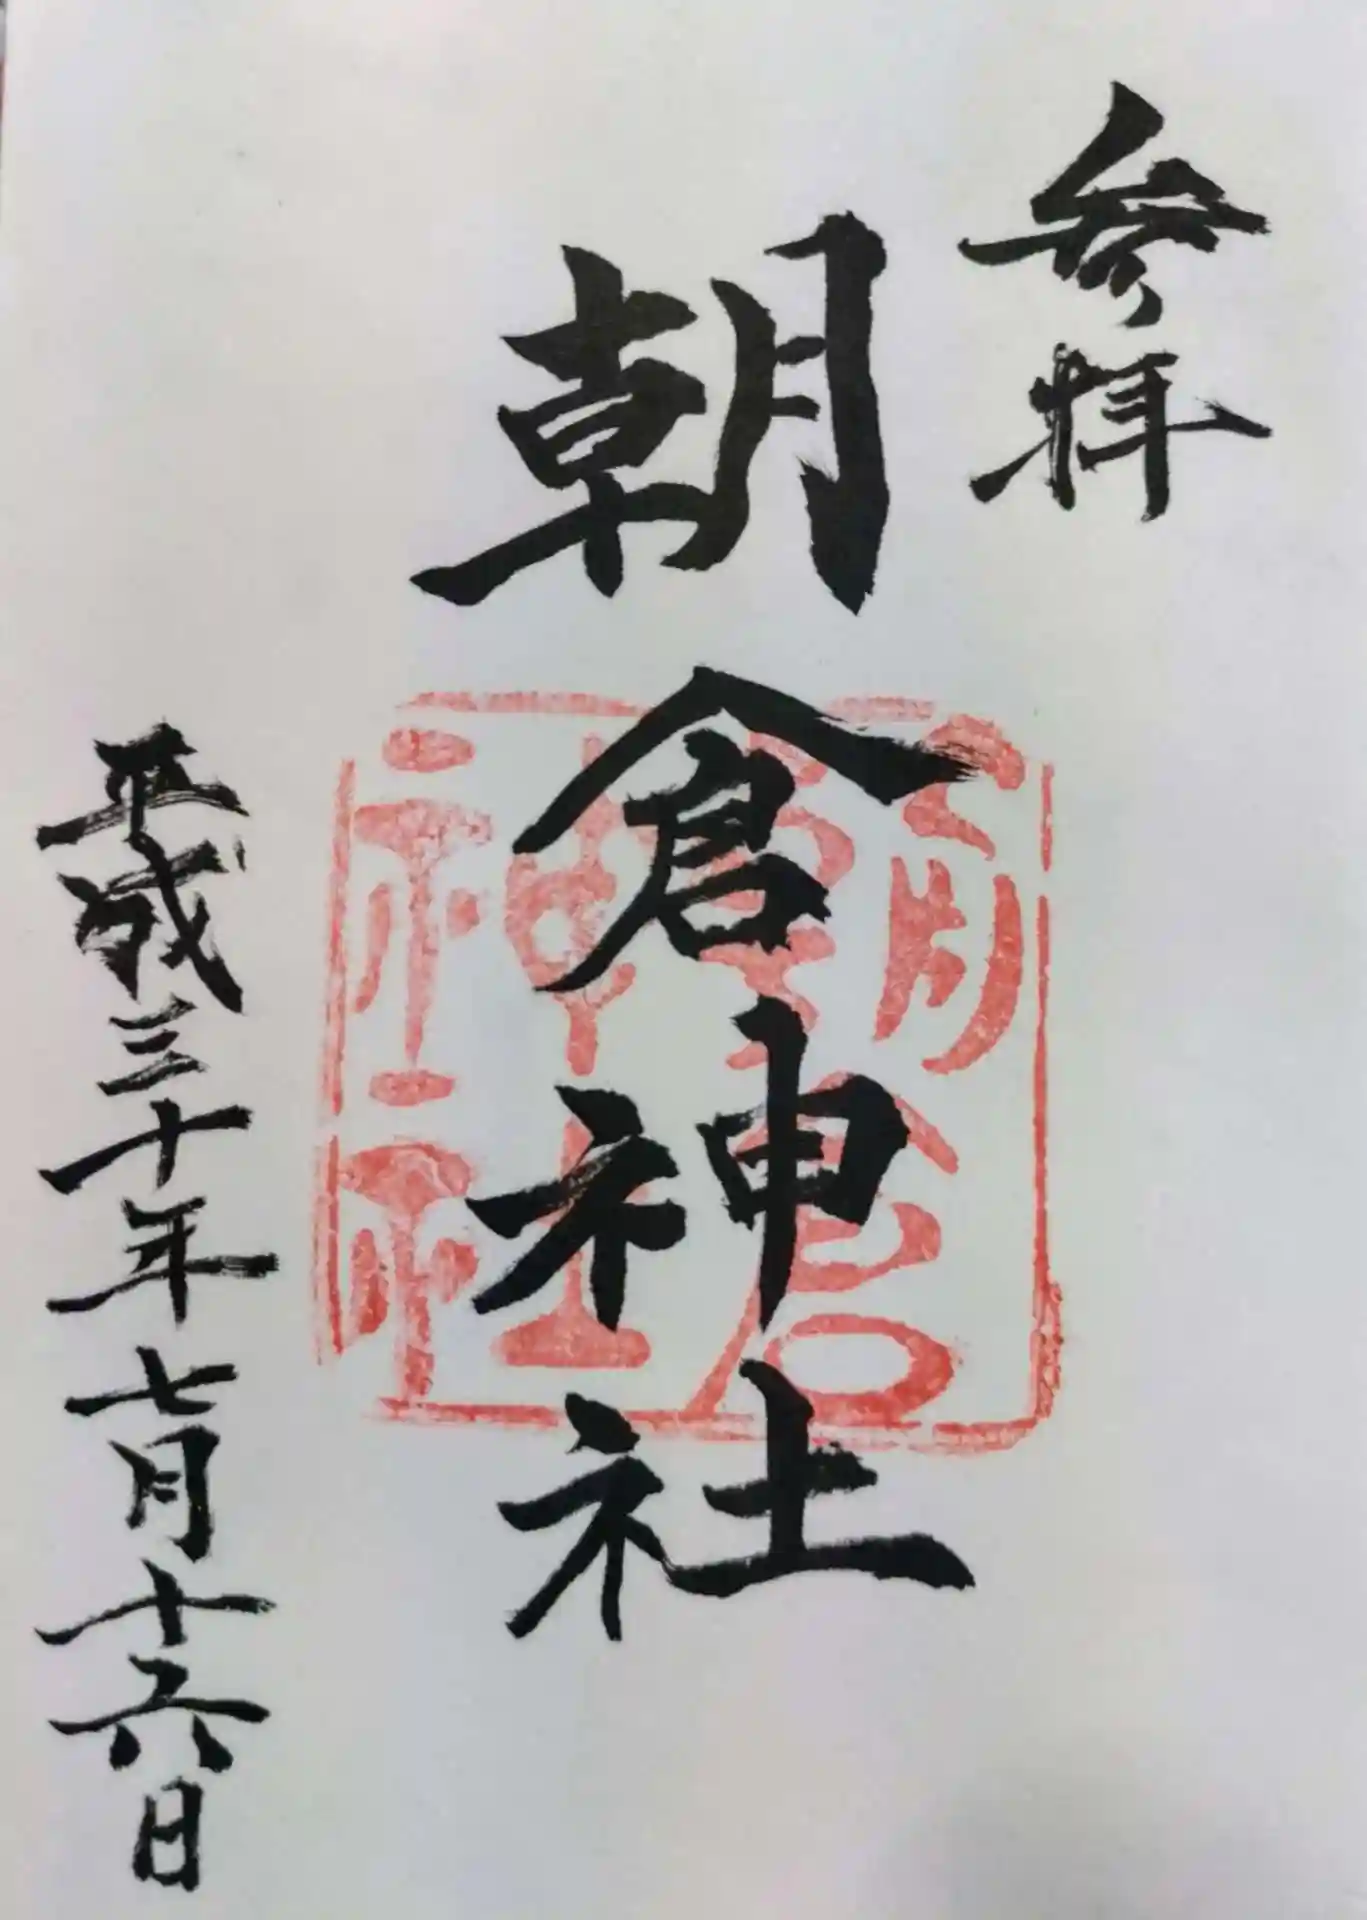 参拝
朝倉神社
平成三十年七月十六日